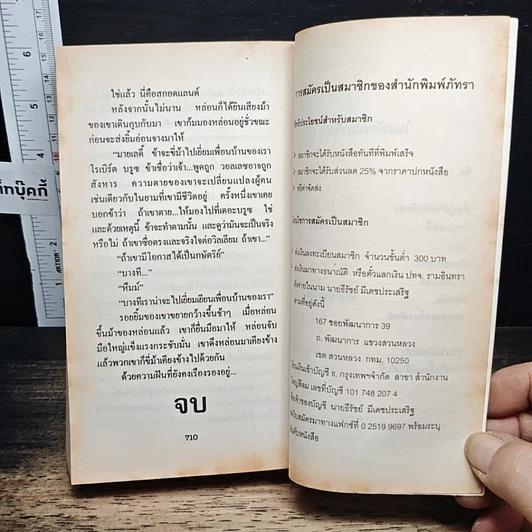 ใช่แล้ว นี่คือสกอตแลนด์
หลังจากนั้นไม่นาน หล่อนก็ได้ยินเสียงม้า
ของเขาเดินกุบกับมา เขาก้มมองหล่อนอยู่ชั่วขณะ
ก่อนจะส่งยิ้มอ่อนจางมาให้
"มายเลดี้ ข้าจะขี่ม้าไปเยี่ยมเพื่อนบ้านของเรา
โรเบิร์ต บรูซ ข้าเชื่อว่าเจ้า...พูดถูก วอลเลซอาจถูก
สังหาร ความตายของเขาจะเปลี่ยนแปลงผู้คน
เช่นเดียวกับในยามที่เขามีชีวิตอยู่ ครั้งหนึ่งเขาเคย
บอกข้าว่า ถ้าเขาตาย...ให้มองไปที่เดอะบรูซ ใช่
และด้วยเหตุนี้ ข้าจะทำตามนั้น และดูว่ามันจะเป็นจริง
หรือไม่ ถ้าเขาซื่อตรงและจริงใจต่อวิลเลียม ถ้าเขา..."
"ถ้าเขามีโอกาสได้เป็นกษัตริย์"
"บางที..."
"หืมม์"
"บางทีเราน่าจะไปเยี่ยมเยียนเพื่อนบ้านของเรา"
รอยยิ้มของเขาขยายกว้างขึ้นช้าๆ เมื่อหล่อน
ขึ้นม้าของหล่อนแล้ว เขาก็ยื่นมือมาให้ หล่อนจับ
มือใหญ่แข็งแรงกระชับมั่น เขาดึงหล่อนมาเคียงข้าง
แล้วพวกเขาก็ขี่ม้าเคียงข้างไปด้วยกัน
ด้วยความฝันที่ยังคงเรืองรองอยู่...
จบ
710
การสมัครเป็นสมาชิกของสำนักพิมพ์ภัทรา
สิทธิประโยชน์สำหรับสมาชิก
สมาชิกจะได้รับหนังสือทันทีที่พิมพ์เสร็จ
สมาชิกจะได้รับส่วนลด 25% จากราคาปกหนังสือ
ฟรีค่าจัดส่ง
การสมัครเป็นสมาชิก
ส่งเงินลงทะเบียนสมาชิก จำนวนขั้นต่ำ 300 บาท
ส่งเงินมาทางธนาณัติ หรือตั๋วแลกเงิน ปทจ. รามอินทรา
สั่งจ่ายในนาม นายธีรัชย์ มีเดชประเสริฐ
ตามที่อยู่ดังนี้
167 ซอยพัฒนาการ 39
ถ. พัฒนาการ แขวงสวนหลวง
เขต สวนหลวง กทม. 10250
โอนเงินเข้าบัญชี ธ. กรุงเทพฯจำกัด สาขา สำนักงาน
ใหญ่สีลม เลขที่บัญชี 101 748 207 4
ชื่อเจ้าของบัญชี นายธีรัชย์ มีเดชประเสริฐ
ส่งใบสมัครมาทางแฟกซ์ที่ 0 2519 9697 พร้อมระบุ